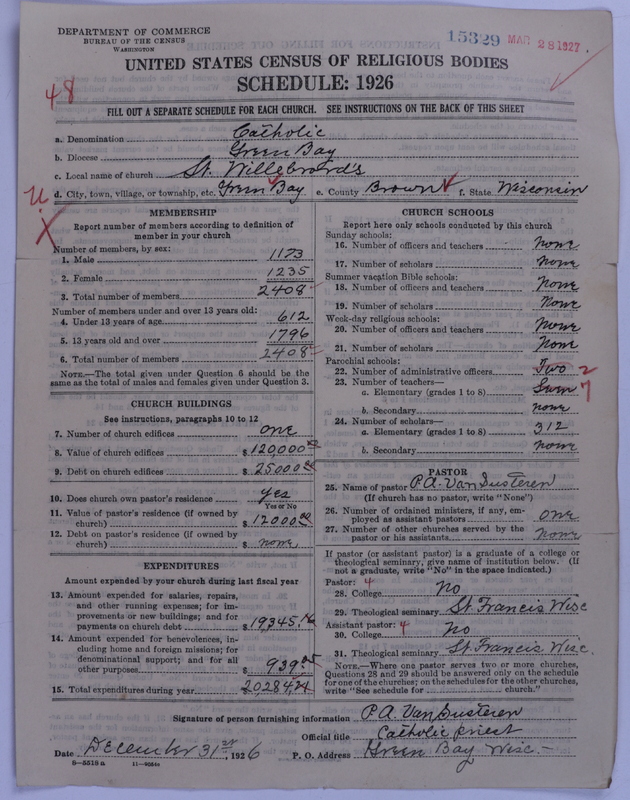 DEPARTMENT OF COMMERCE
BUREAU OF THE CENSUS
WASHINGTON
15329 MAR 28 1927
UNITED STATES CENSUS OF RELIGIOUS BODIES
SCHEDULE: 1926
48
FILL OUT A SEPARATE SCHEDULE FOR EACH CHURCH. SEE INSTRUCTIONS ON THE BACK OF THIS SHEET
a. Denomination Catholic
b. Diocese Green Bay
c. Local name of church St. Willebrord's
d. City, town, village, or township, etc. Green Bay e. County Brown f. State Wisconsin
U
X
MEMBERSHIP
Report number of members according to definition of
member in your church
Number of members, by sex:
1. Male 1173
2. Female 1235
3. Total number of members 2408
Number of members under and over 13 years old:
4. Under 13 years of age 612
5. 13 years old and over 1796
6. Total number of members 2408
NOTE.—The total given under Question 6 should be the
same as the total of males and females given under Question 3.
CHURCH BUILDINGS
See instructions, paragraphs 10 to 12
7. Number of church edifices one
8. Value of church edifices $ 120,000
9. Debt on church edifices $ 25000
10. Does church own pastor's residence yes
Yes or No
11. Value of pastor's residence (if owned by
church) $ 12000 00
12. Debt on pastor's residence (if owned by
church) $ none
EXPENDITURES
Amount expended by your church during last fiscal year
13. Amount expended for salaries, repairs,
and other running expenses; for im-
provements or new buildings; and for
payments on church debt $ 19,345.16
14. Amount expended for benevolences, in-
cluding home and foreign missions; for
denominational support; and for all
other purposes $ 939
15. Total expenditures during year $ 20284
CHURCH SCHOOLS
Report here only schools conducted by this church
Sunday schools:
16. Number of officers and teachers none
17. Number of scholars none
Summer vacation Bible schools:
18. Number of officers and teachers none
19. Number of scholars none
Week-day religious schools:
20. Number of officers and teachers none
21. Number of scholars none
Parochial schools:
22. Number of administrative officers Two 2
23. Number of teachers—
a. Elementary (grades 1 to 8) Seven 7
b. Secondary none
24. Number of scholars—
a. Elementary (grades 1 to 8) 312
b. Secondary none
PASTOR
25. Name of pastor P.A. Van Susteren
(If church has no pastor, write "None")
26. Number of ordained ministers, if any, em-
ployed as assistant pastors one
27. Number of other churches served by the
pastor or his assistants none
If pastor (or assistant pastor) is a graduate of a college or
theological seminary, give name of institution below. (If
not a graduate, write "No" in the space indicated.)
Pastor: 4
28. College No
29. Theological seminary St Francis Wisc
Assistant pastor: 4
30. College No
31. Theological seminary St Francis Wisc.
NOTE.—Where one pastor serves two or more churches,
Questions 28 and 29 should be answered only on the schedule
for one of the churches; on the schedules for the other churches,
write "See schedule for church."
Signature of person furnishing information P.A. Van Susteren
Official title Catholic priest
Date December 31st, 1926 P. O. Address Green Bay Wisc.
8—5519 a